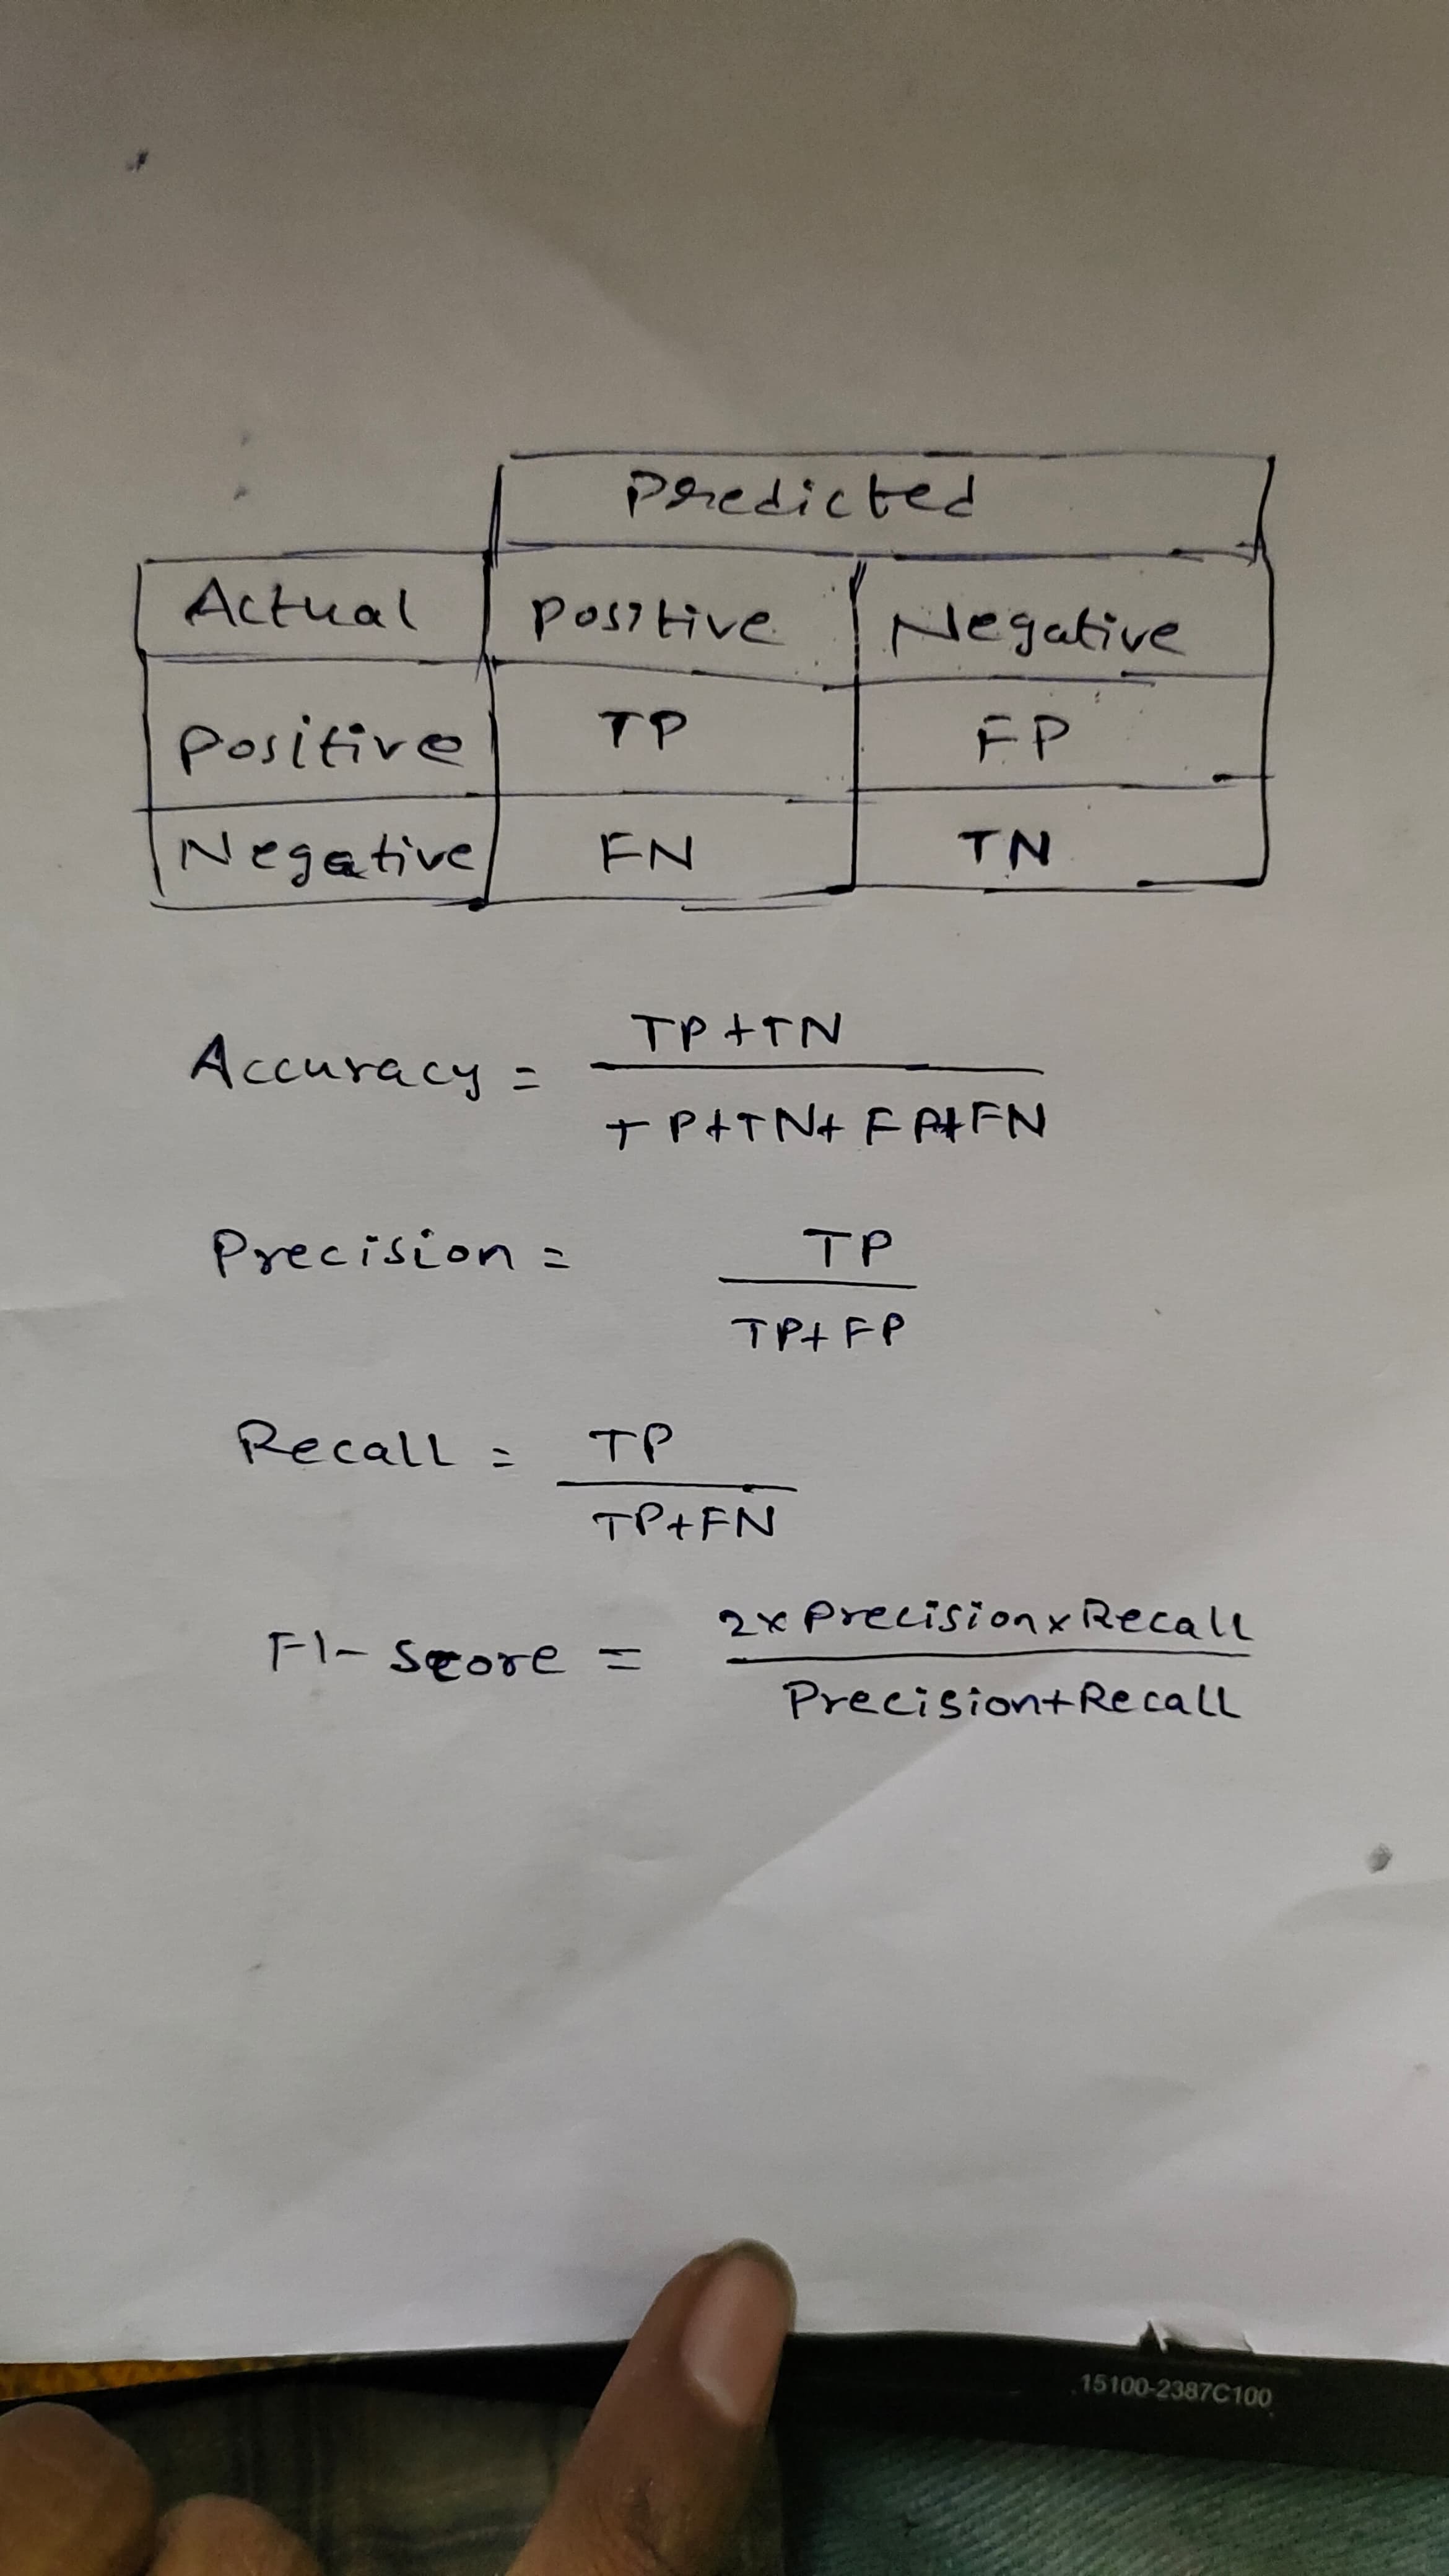 Predicted
Actual Positive Negative
Positive TP FP
Negative FN TN
Accuracy = TP+TN
TP+TN+FP+FN
Precision = TP
TP+FP
Recall = TP
TP+FN
F1-Score = 2xPrecisionxRecall
Precision+Recall
15100-2387C100